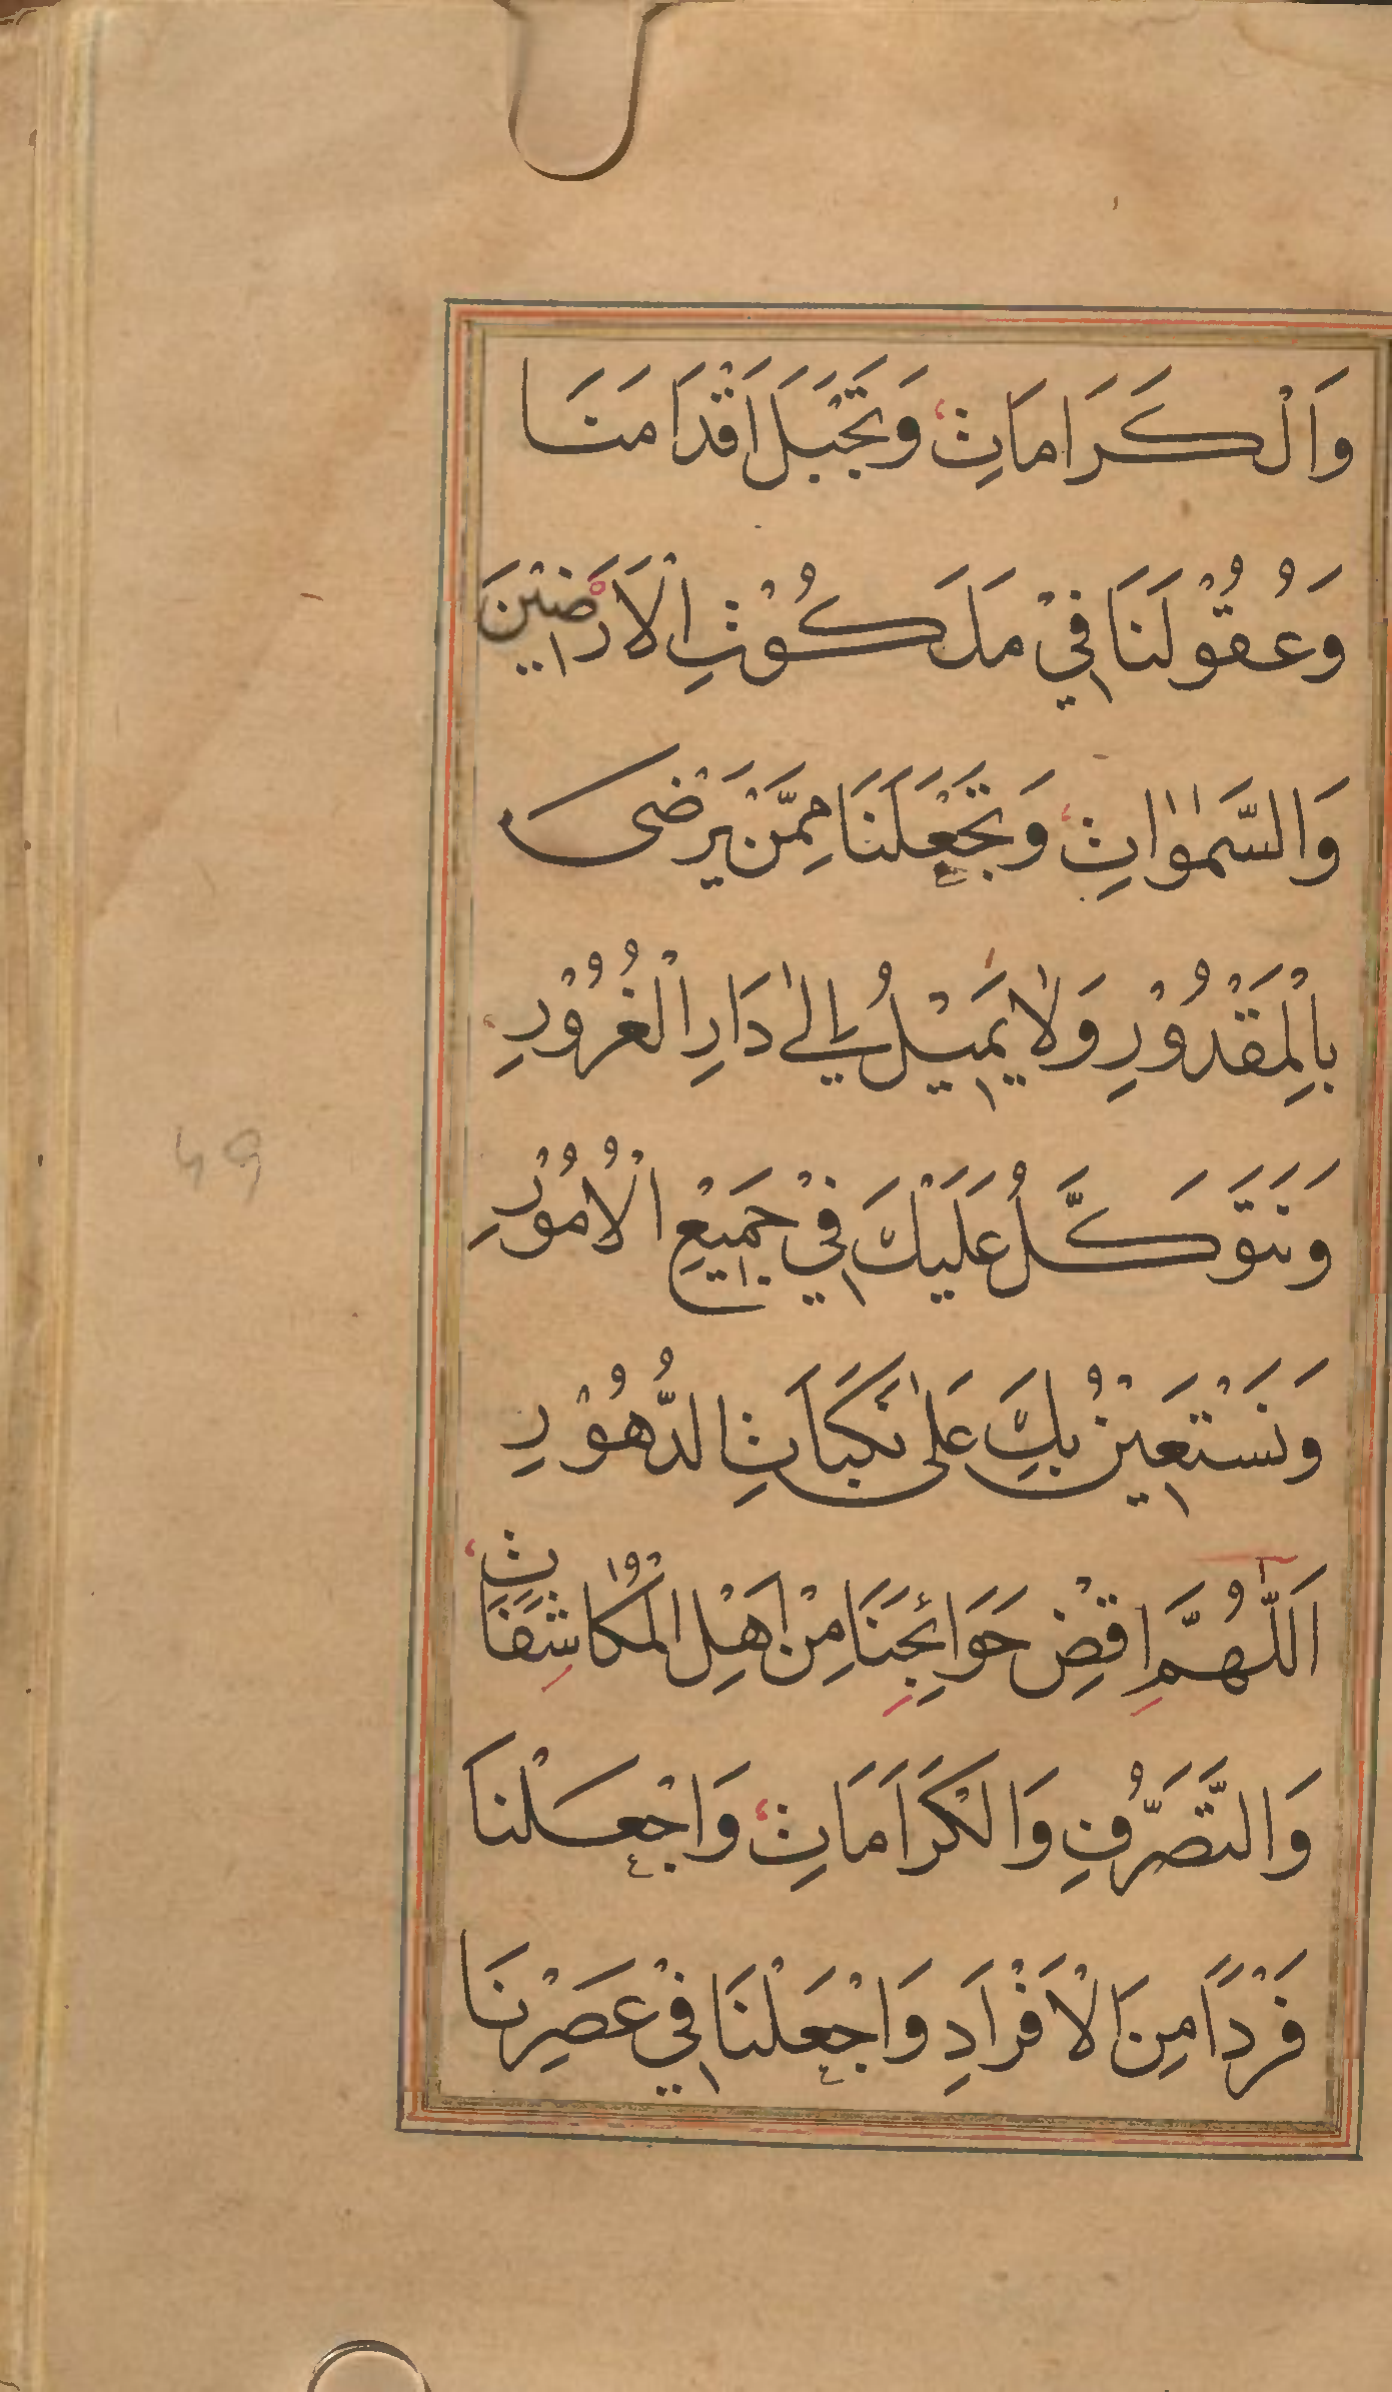 وَالْكَرَامَاتِ وَتَجْبَلَ اَقْدَامَنَا
وَعُقُوْلَنَا فِيْ مَلَكُوْتِ الْاَرَضِيْنَ
وَالسَّمٰوٰاتِ وَتَجْعَلَنَا مِمَّنْ يَرْضٰى
بِالْمَقْدُوْرِ وَلٰا يَمِيْلُ اِلٰى دَارِ الْغُرُوْرِ
وَنَتَوَكَّلُ عَلَيْكَ فِيْ جَمِيْعِ الْاُمُوْرِ
وَنَسْتَعِيْنُ بِكَ عَلٰى نَكَبَاتِ الدُّهُوْرِ
اَللّٰهُمَّ اقْضِ حَوَائِجَنَا مِنْ اَهْلِ الْمُكَاشَفَاتِ
وَالتَّصَرُّفِ وَالْكَرَامَاتِ وَاجْعَلْنَا
فَرْدًا مِنَ الْاَفْرَادِ وَاجْعَلْنَا فِيْ عَصْرِنَا